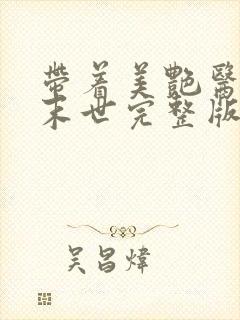 帶着美艷醫
末世完整版
吴昌煒